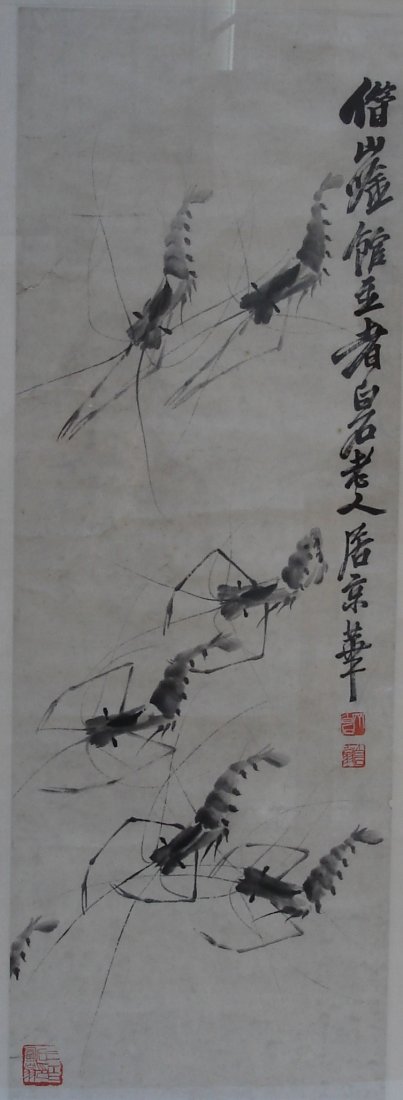 借山唫館主者白石老人居京華